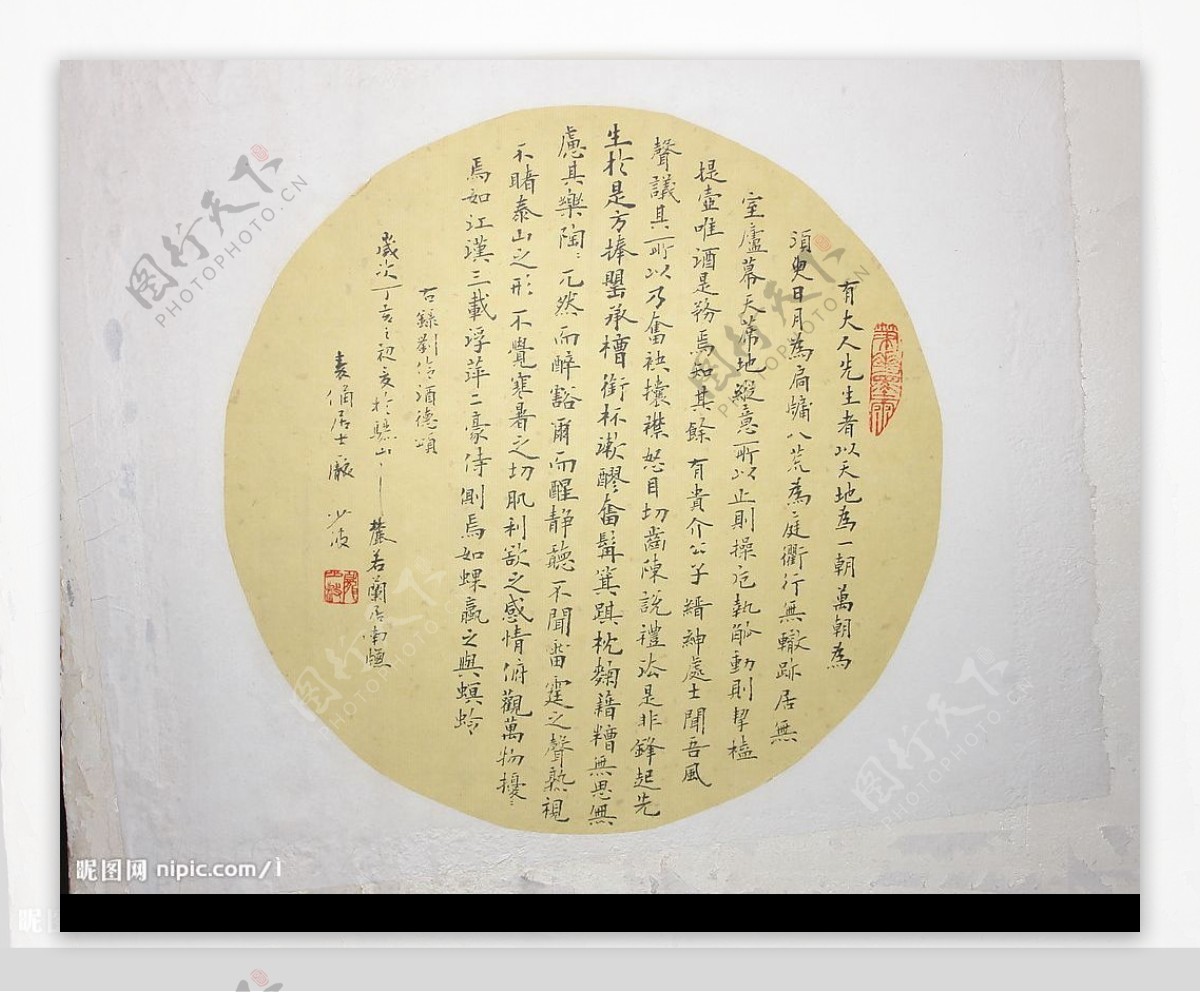 有大人先生者以天地為一朝萬朝為
須臾日月為扃牖八荒為庭衢行無轍跡居無
室廬幕天席地縱意所以止則操卮執觚動則挈榼
提壺唯酒是務焉知其餘有貴介公子縉紳處士聞吾風
聲議其所以乃奮袂攘襟怒目切齒陳說禮法是非鋒起先
生於是方捧罌承槽銜杯漱醪奮髯箕踑枕麴藉糟無思無
慮其樂陶〻兀然而醉豁爾而醒靜聽不聞雷霆之聲熟視
不睹泰山之形不覺寒暑之切肌利欲之感情俯觀萬物擾〻
焉如江漢三載浮萍二豪侍側焉如蜾蠃之與螟蛉
右錄劉伶酒德頌
歲次丁亥之初亥於驪山之麓若蘭居南
居士 少波
图行天下
PHOTO.CN
图行天下
PHOTOPHOTO.CN
昵图网 nipic.com/
昵